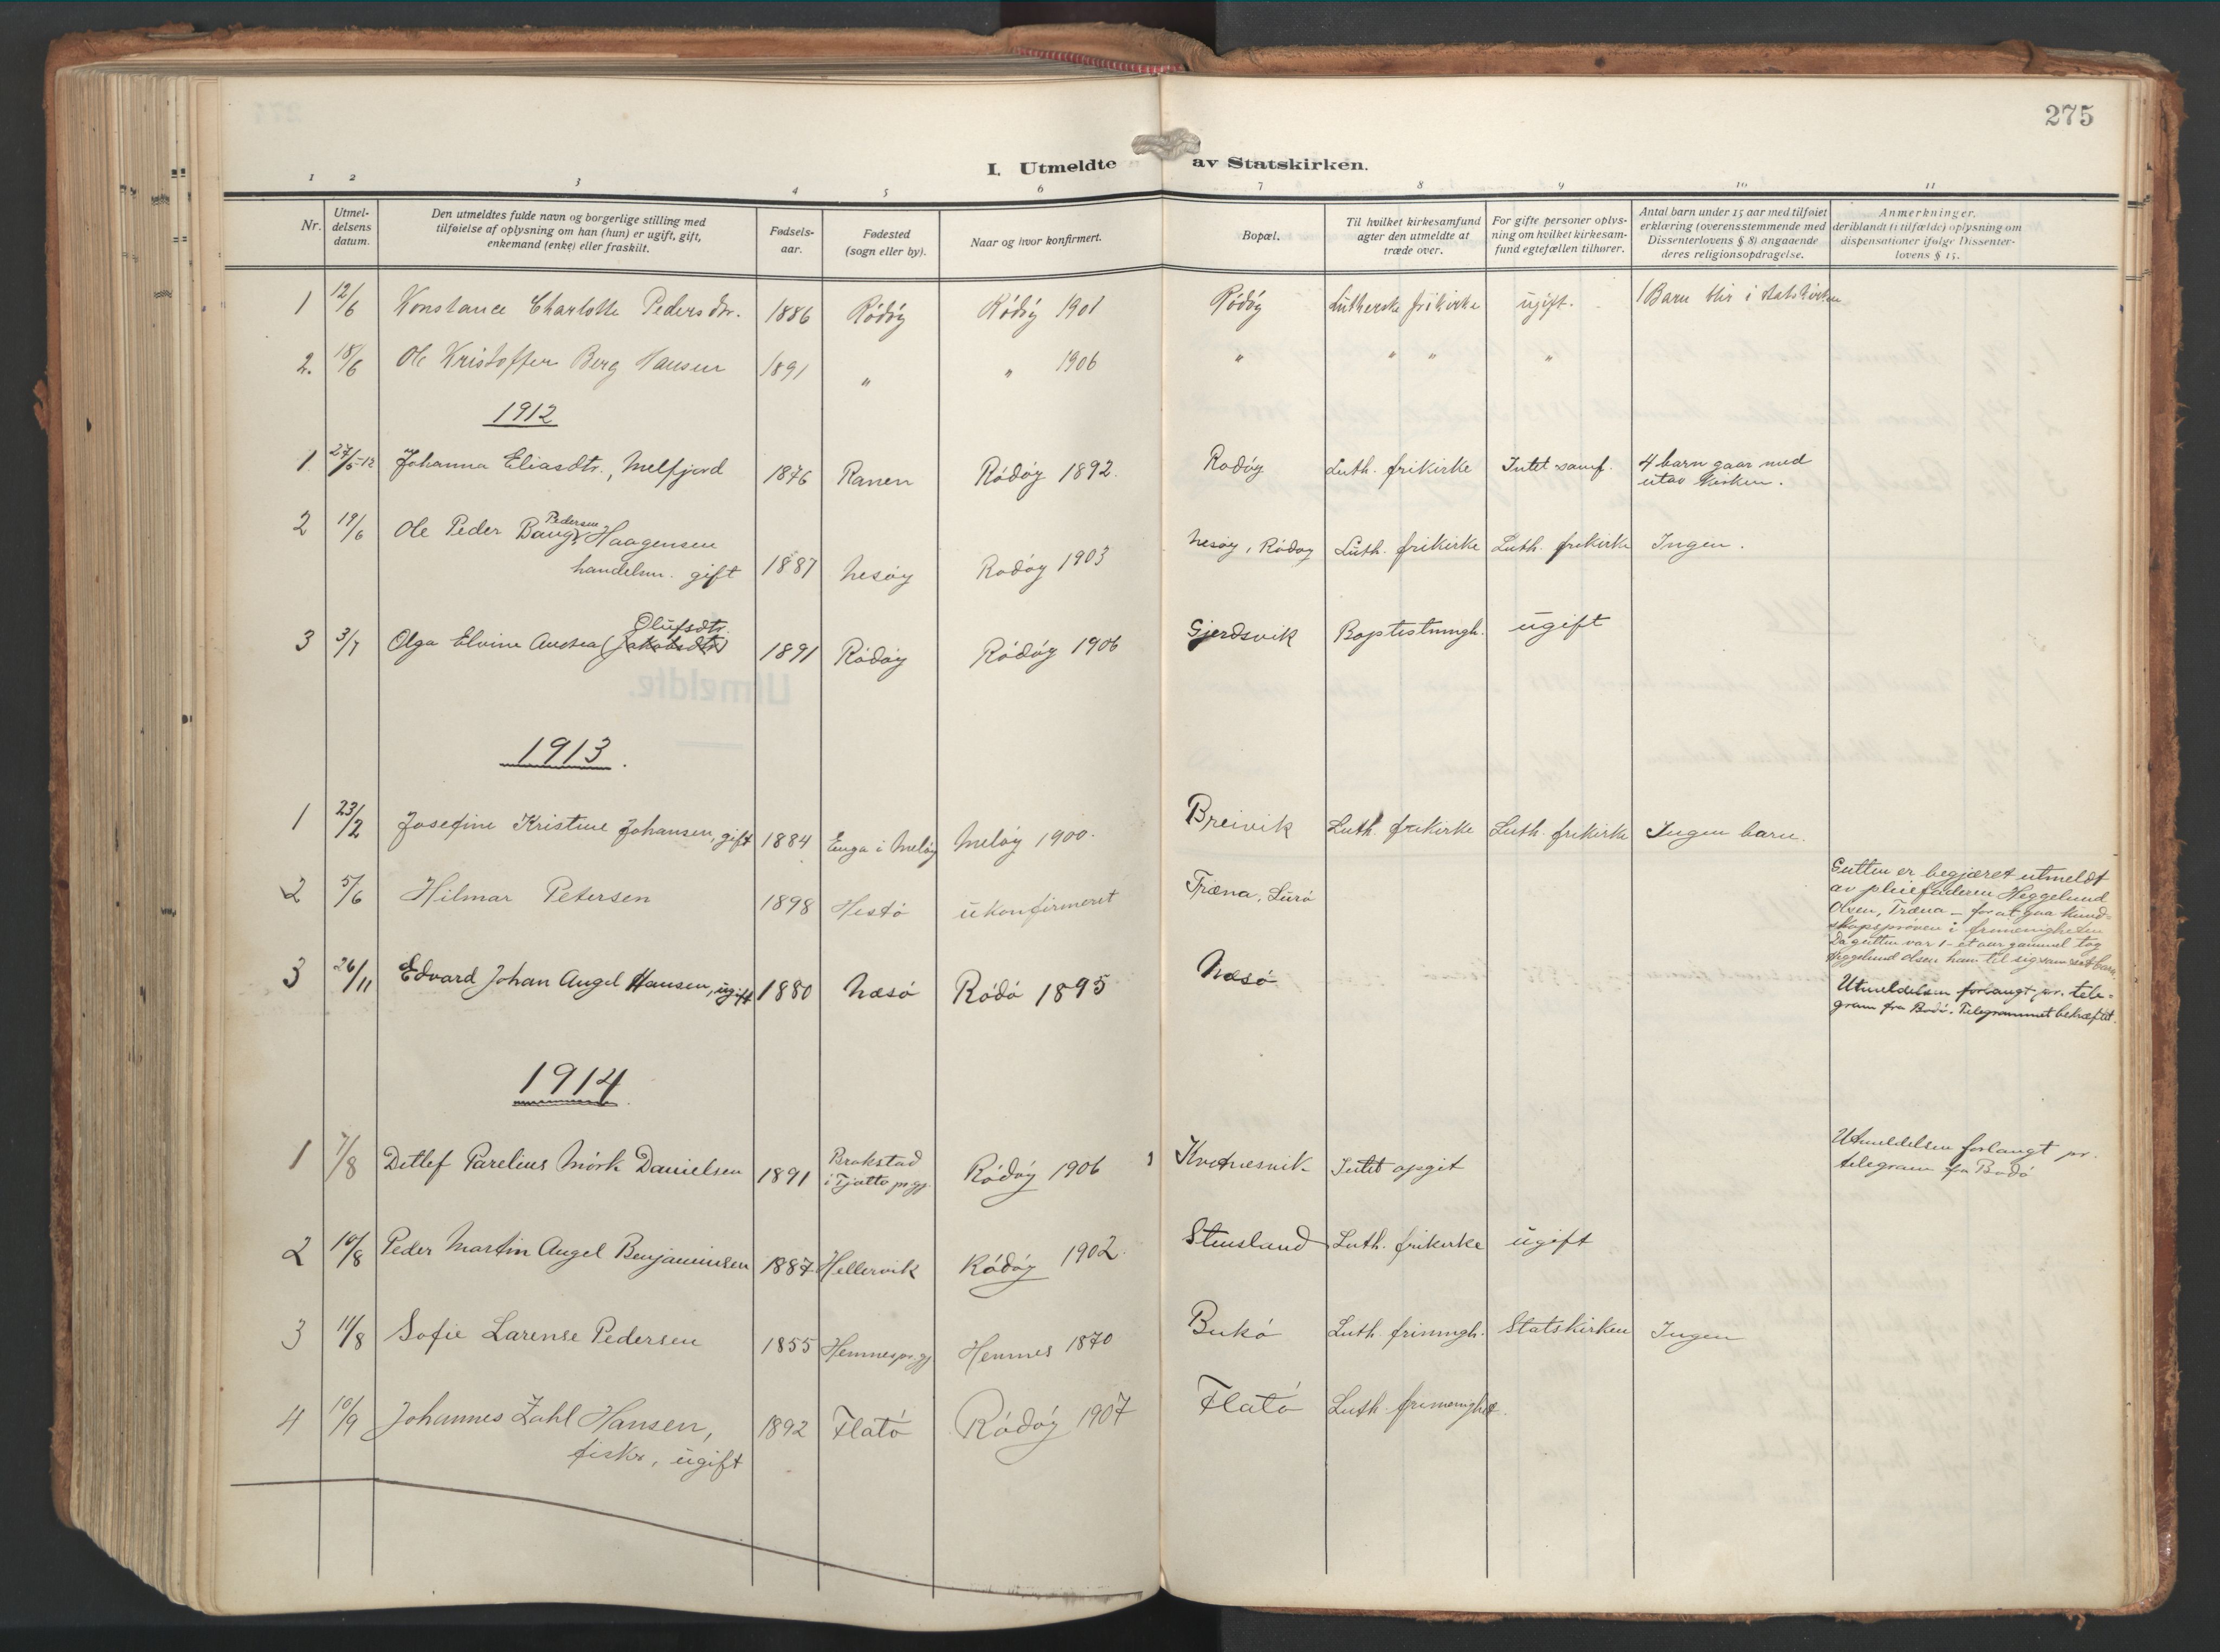 275
I. Utmeldte av Statskirken.
1 2 3 4 5 6 7 8 9 10 11
Nr.
Utmel-
delsens
datum.
Den utmeldtes fulde navn og borgerlige stilling med
tilføielse af oplysning om han (hun) er ugift, gift,
enkemand (enke) eller fraskilt.
Fødsels-
aar.
Fødested
(sogn eller by).
Naar og hvor konfirmert.
Bopæl.
Til hvilket kirkesamfund
agter den utmeldte at
træde over.
For gifte personer oplys-
ning om hvilket kirkesam-
fund egtefællen tilhører.
Antal barn under 15 aar med tilføiet
erklæring (overensstemmende med
Dissenterlovens § 8) angaaende
deres religionsopdragelse.
Anmerkninger.
deriblandt (i tilfælde) oplysning om
dispensationer ifølge Dissenter-
lovens § 15.
1 12/6 Konstance Charlotte Pedersdtr. 1886 Rödöy Rödöy 1901 Rödöy Lutherske frikirke ugift. 1 Barn blir i statskirken
2. 18/6 Ole Kristoffer Berg Hansen 1891 " " 1906 " " " "
1912
1 27/5-12 Johanna Eliasdtr., Melfjord 1876 Ranen Rödöy 1892. Rodöy Luth. frikirke Intet samf. 4 barn gaar med
utav kirken.
Pedersen
2 19/6 Ole Peder Bang Haagensen
handelsm. gift 1887 Nesöy Rodöy 1903 Nesöy, Rödöy Luth. frikirke Luth. frikirke Ingen.
Olufsdtr.
3 3/7 Olga Elvine Andrea (Jakobsdtr) 1891 Rödöy Rödöy 1906 Gjerdsvik Baptistmngh. ugift
1913.
1 23/2 Josefine Kristine Johansen, gift 1884 Enga i Melöy Melöy 1900. Breivik Luth. frikirke Luth. frikirke Ingen barn.
2 5/6 Hilmar Petersen 1898 Hestö ukonfirmeret Træna, Lurö
Gutten er begjæret utmeldt
av pleiefaderen Heggelund
Olsen, Træna – for at gaa kund-
skapsprøven i frimenigheten
Da gutten var 1 – et aar gammel tog
Heggelund Olsen ham til sig som sit barn.
3 26/11 Edvard Johan Angel Hansen, ugift 1880 Næsö Rödö 1895 Næsö
Utmeldelsen forlangt pr. tele-
gram fra Bodö. Telegrammet bekræftet.
1914.
1 7/8 Detlef Parelius Mörk Danielsen 1891 Brakstad
i Tjötto prgj. Rödöy 1906 Kvarnesvik Intet opgit
Utmeldelsen forlangt pr.
telegram fra Bodö
2 10/8 Peder Martin Angel Benjaminsen 1887 Hellervik Rödöy 1902. Stensland Luth. frikirke ugift
3 11/8 Sofie Larense Pedersen 1855 Hemnes pr.gj Hemnes 1870 Bukö Luth. frimngh. Statskirken Ingen
4 10/9 Johannes Zahl Hansen,
fisker, ugift 1892 Flatö Rödöy 1907 Flatö Luth. frimenighet.